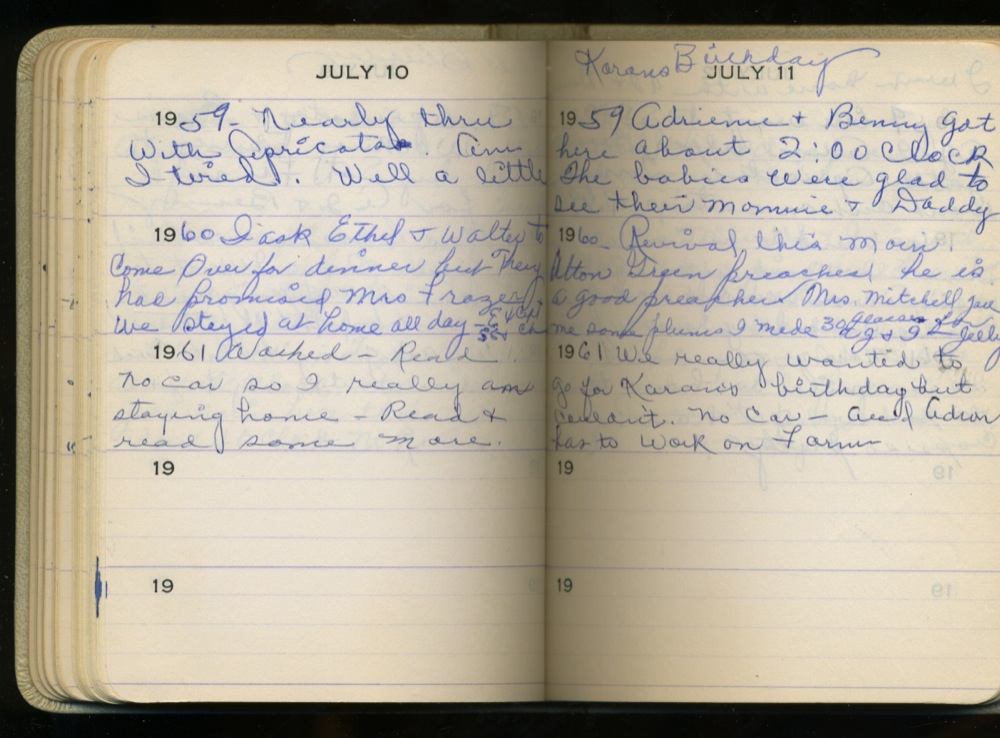 JULY 10
1959 - Nearly thru
With Apricots. Am
I tired. Well a little
1960 I ask Ethel & Walter to
Come Over for dinner but They
had promised Mrs Frazer
We stayed at home all day
1961 Washed - Read
No car so I really am
staying home - Read &
read some more.
19
19
Karans Birthday
JULY 11
1959 Adrienne & Benny got
here about 2:00 Clock
The babies were glad to
see their Mommie & Daddy
1960 - Revival this morn
Alton Green preached he is
a good preacher Mrs. Mitchell gave
me some plums I made 3 glasses Jelly
1961 We really wanted to
go for Karans birthday but
couldn't. No Car - and Adron
has to work on Farm
19
19